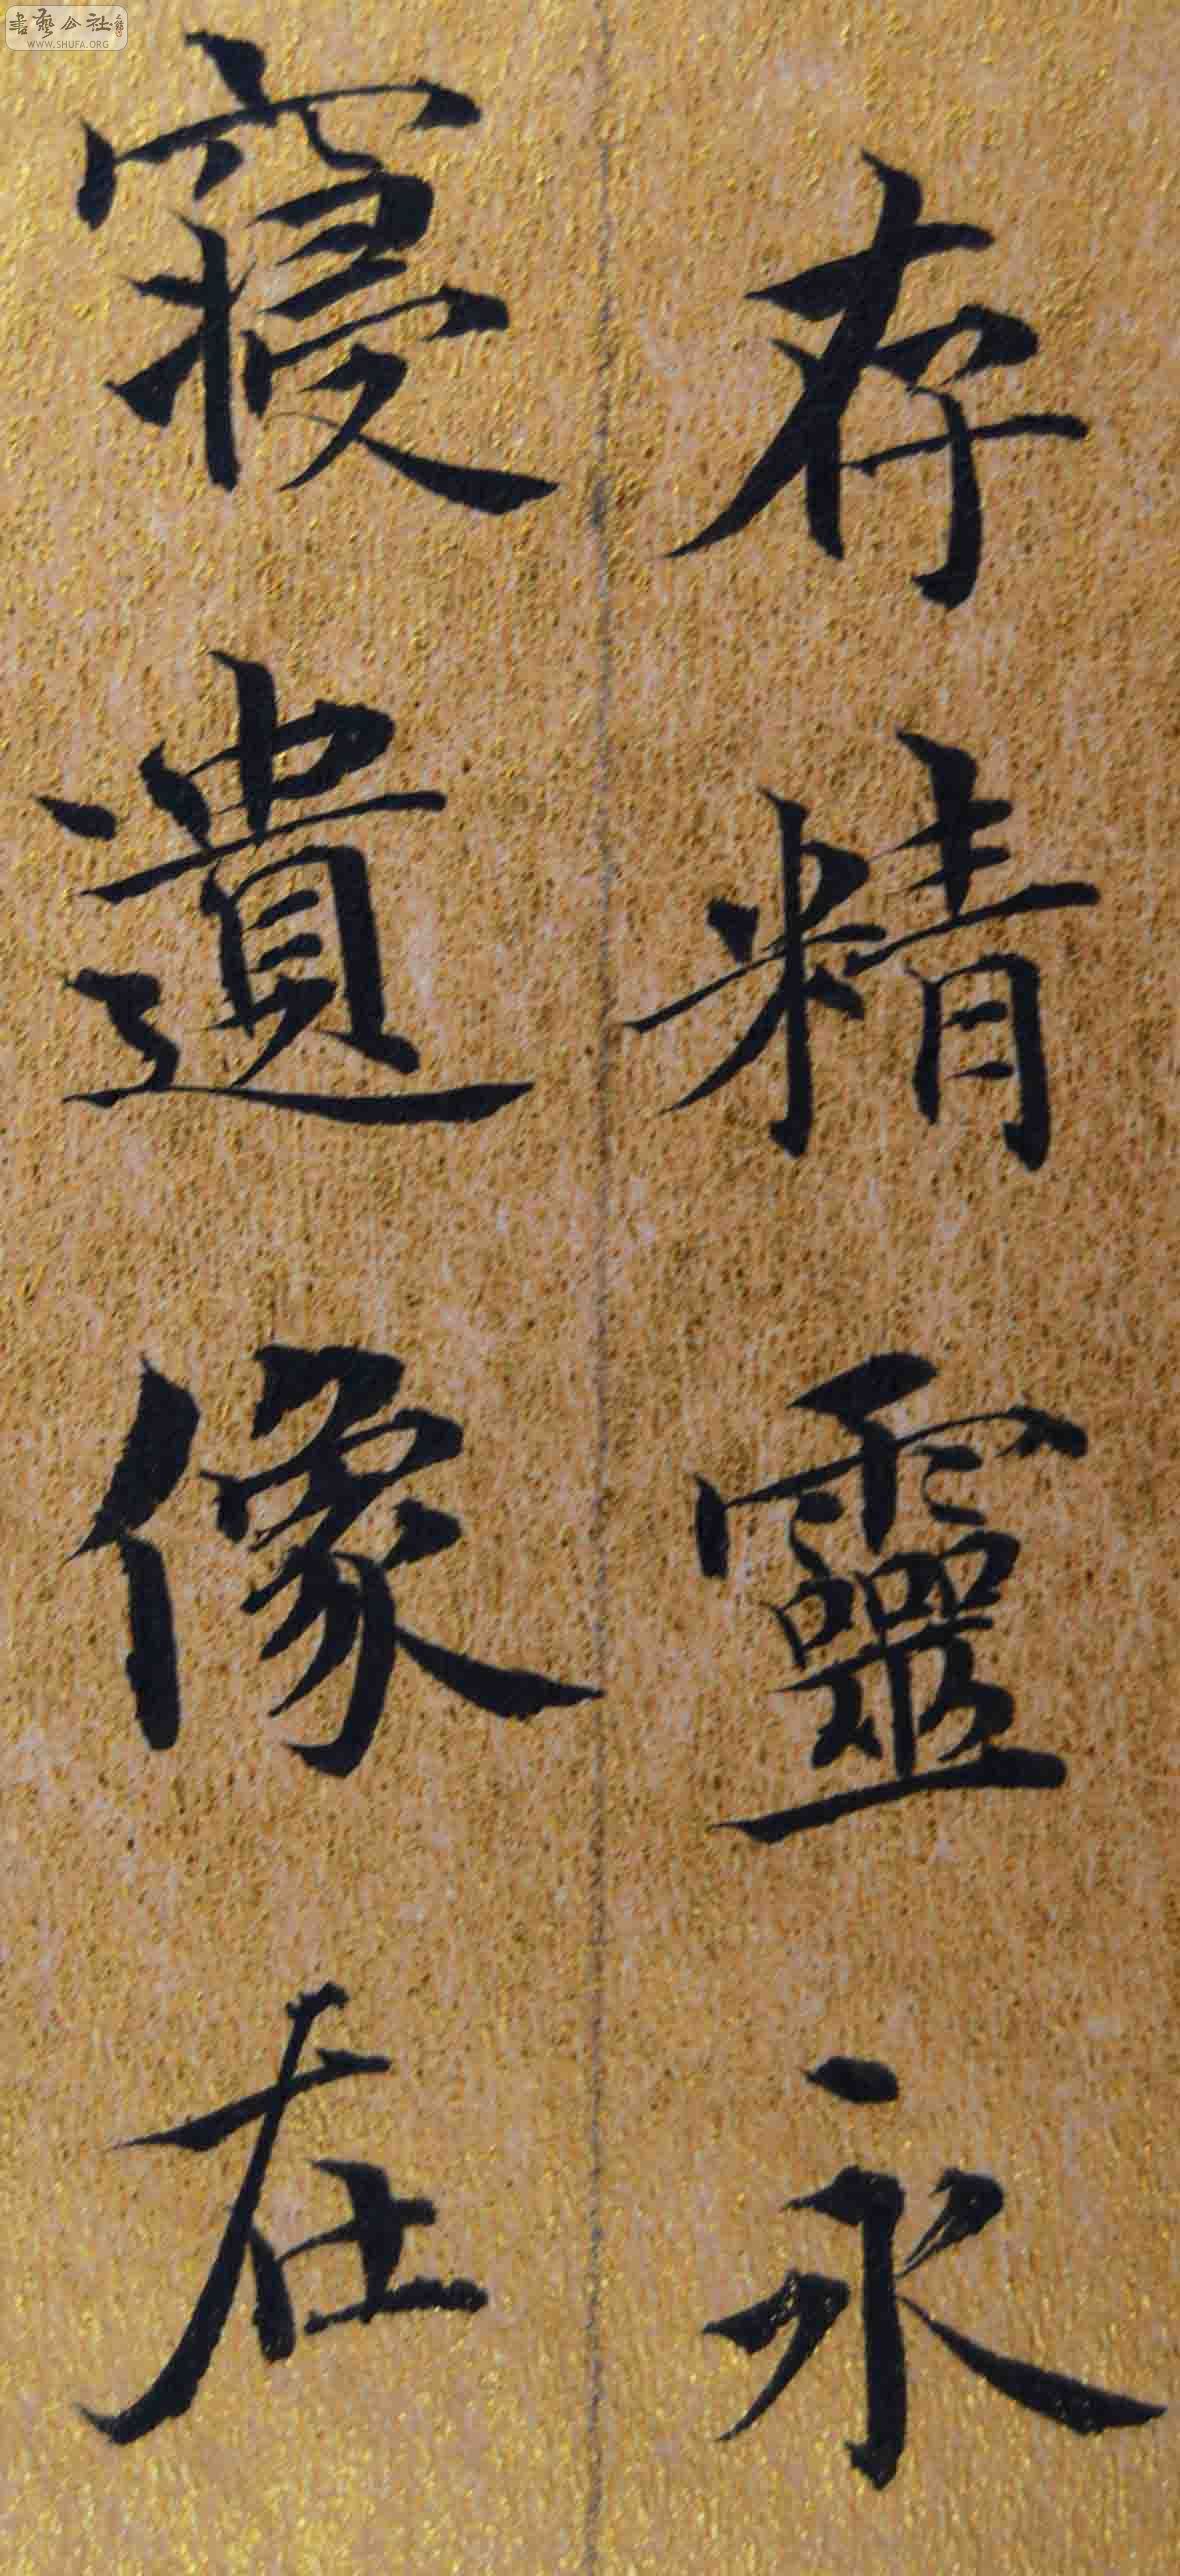 存精靈永
寢遺像在
書藝公社
WWW.SHUFA.ORG